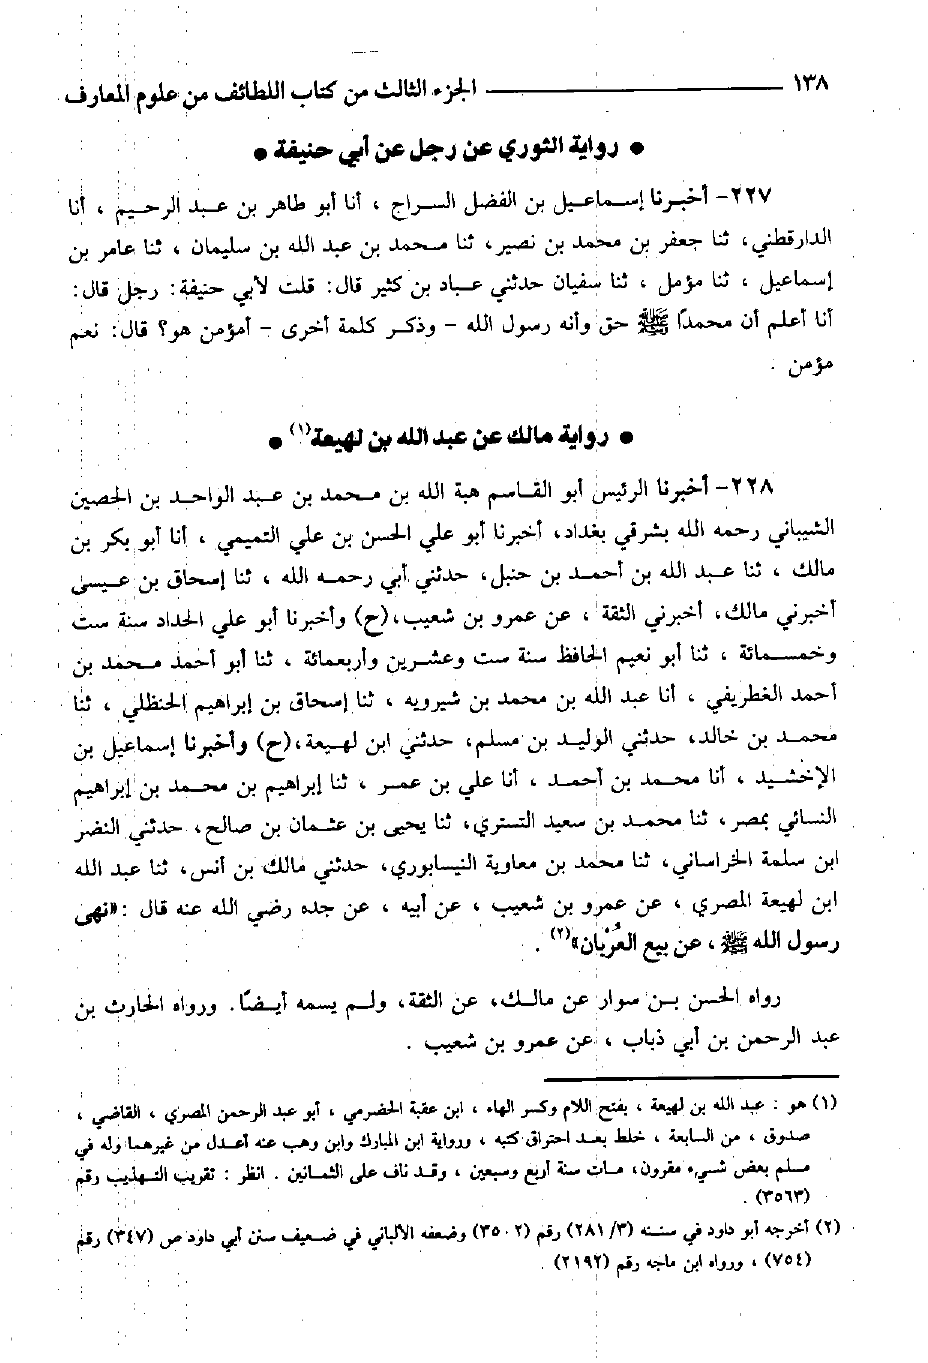 ١٣٨ الجزء الثالث من كتاب اللطائف من علوم المعارف
● رواية الثوري عن رجل عن أبي حنيفة ●
٢٢٧- أخبرنا إسماعيل بن الفضل السراج ، أنا أبو طاهر بن عبد الرحيم ، أنا
الدارقطني، ثنا جعفر بن محمد بن نصير، ثنا محمد بن عبد الله بن سليمان ، ثنا عامر بن
إسماعيل ، ثنا مؤمل ، ثنا سفيان حدثني عباد بن كثير قال: قلت لأبي حنيفة: رجل قال:
أنا أعلم أن محمدًا ﷺ حق وأنه رسول الله - وذكر كلمة أخرى - أمؤمن هو؟ قال: نعم
مؤمن .
● رواية مالك عن عبد الله بن لهيعة(١) ●
٢٢٨- أخبرنا الرئيس أبو القاسم هبة الله بن محمد بن عبد الواحد بن الحصين
الشيباني رحمه الله بشرقي بغداد، أخبرنا أبو علي الحسن بن علي التميمي ، أنا أبو بكر بن
مالك ، ثنا عبد الله بن أحمد بن حنبل، حدثني أبي رحمه الله ، ثنا إسحاق بن عيسى
أخبرني مالك، أخبرني الثقة ، عن عمرو بن شعيب،(ح) وأخبرنا أبو علي الحداد سنة ست
وخمسمائة ، ثنا أبو نعيم الحافظ سنة ست وعشرين وأربعمائة ، ثنا أبو أحمد محمد بن
أحمد الغطريفي ، أنا عبد الله بن محمد بن شيرويه ، ثنا إسحاق بن إبراهيم الحنظلي ، ثنا
محمد بن خالد، حدثني الوليد بن مسلم، حدثني ابن لهيعة،(ح) وأخبرنا إسماعيل بن
الإخشيد ، أنا محمد بن أحمد ، أنا علي بن عمر ، ثنا إبراهيم بن محمد بن إبراهيم
النسائي بمصر، ثنا محمد بن سعيد التستري، ثنا يحيى بن عثمان بن صالح، حدثني النضر
ابن سلمة الخراساني، ثنا محمد بن معاوية النيسابوري، حدثني مالك بن أنس، ثنا عبد الله
ابن لهيعة المصري ، عن عمرو بن شعيب ، عن أبيه ، عن جده رضي الله عنه قال :«نهى
رسول الله ﷺ ، عن بيع العُرْبان»(٢) .
رواه الحسن بن سوار عن مالك، عن الثقة، ولم يسمه أيضًا. ورواه الحارث بن
عبد الرحمن بن أبي ذباب ، عن عمرو بن شعيب .
(١) هو : عبد الله بن لهيعة ، بفتح اللام وكسر الهاء ، ابن عقبة الحضرمي ، أبو عبد الرحمن المصري ، القاضي ،
صدوق ، من السابعة ، خلط بعد احتراق كتبه ، ورواية ابن المبارك وابن وهب عنه أعدل من غيرهما وله في
مسلم بعض شيء مقرون، مات سنة أربع وسبعين ، وقد ناف على الثمانين . انظر : تقريب التهذيب رقم
(٣٥٦٣) .
(٢) أخرجه أبو داود في سننه (٣/ ٢٨١) رقم (٣٥٠٢) وضعفه الألباني في ضعيف سنن أبي داود ص (٣٤٧) رقم
(٧٥٤) ، ورواه ابن ماجه رقم (٢١٩٢) .